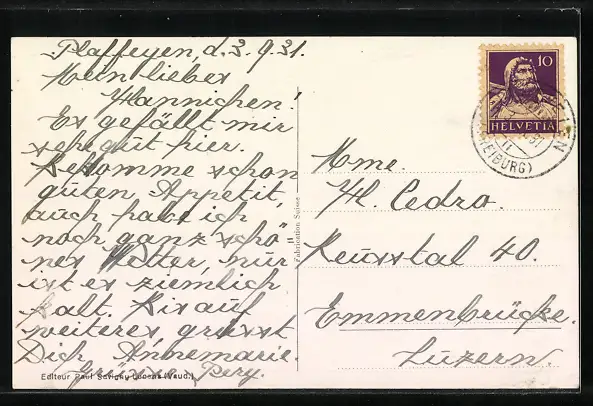 Plaffeyen, d. 3. 9. 31.
Mein lieber
Hannichen!
Es gefällt mir
sehr gut hier.
Bekomme schon
guten Appetit,
auch habe ich
noch ganz schö=
nes Wetter, nur
ist es ziemlich
kalt. Bis auf
weiteres grüsst
Dich, Annemarie.
Pery.
Editeur Paul Savigny Lucens (Vaud.)
Fabrication Suisse
10
HELVETIA
EIBURG)
Mme.
H. Cedro.
Reusstal 40.
Emmenbrücke.
Luzern.